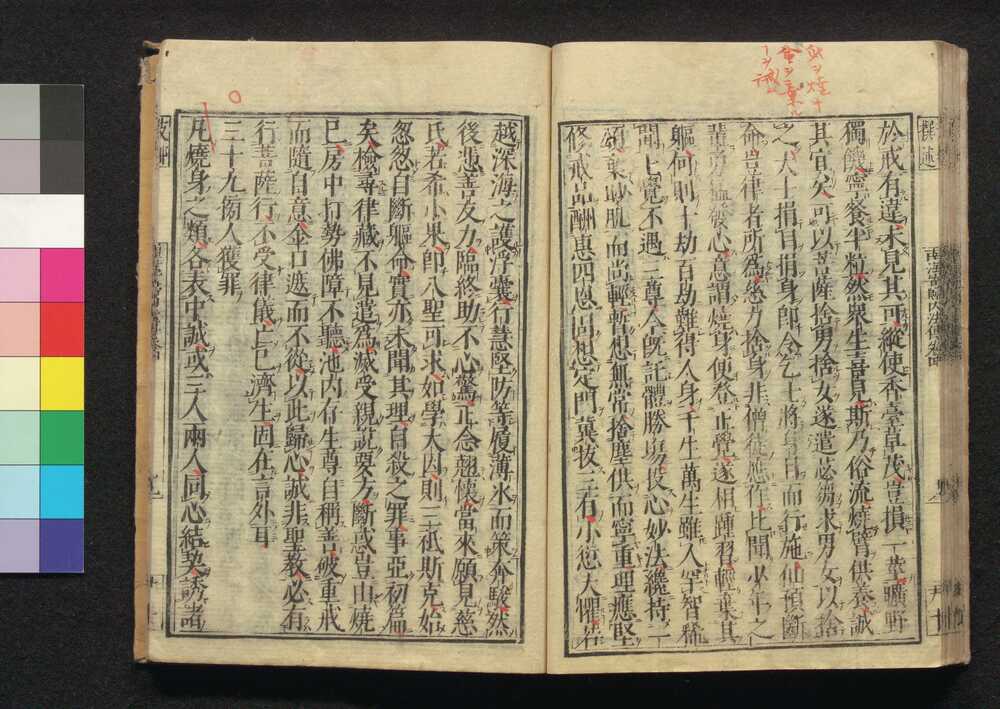 於戒有違未見其可縱使香臺草茂豈損一莖曠野
獨饑寧餐半粒然衆生喜見斯乃俗流燒臂供養誠
其宜矣可以菩薩捨男捨女遂遣苾蒭求男女以捨
之大士捐目捐身即令乞士將身目而行施仙預斷
命豈律者所爲慈力捨身非僧徒應作比聞少年之
輩勇猛發心意謂燒身便登正覺遂相踵習輕棄其
軀何則十劫百劫難得人身千生萬生雖人罕智稀
聞七覺不遇三尊今旣託體勝場投心妙法纔持一
頌棄眇肌而尚輕暫想無常捨塵供而寧重理應堅
修戒品酬惠四恩固想定門冀拔三有小愆大懼若
越深海之護浮囊行慧堅防等履薄氷而策奔駿然
後憑善友力臨終助不心驚正念翹懷當來願見慈
氏若希小果即八聖可求如學大因則三祇斯克始
怱怱自斷軀命實亦未聞其理自殺之罪事亞初篇
矣檢尋律藏不見遣爲滅受親說要方斷惑豈由燒
已房中打勢佛障不聽池內存生尊自稱善破重戒
而隨自意金口遮而不從以此歸心誠非聖教必有
行菩薩行不受律儀亡己濟生固在言外耳
三十九傍人獲罪
凡燒身之類各表中誠或三人兩人同心結契誘諸